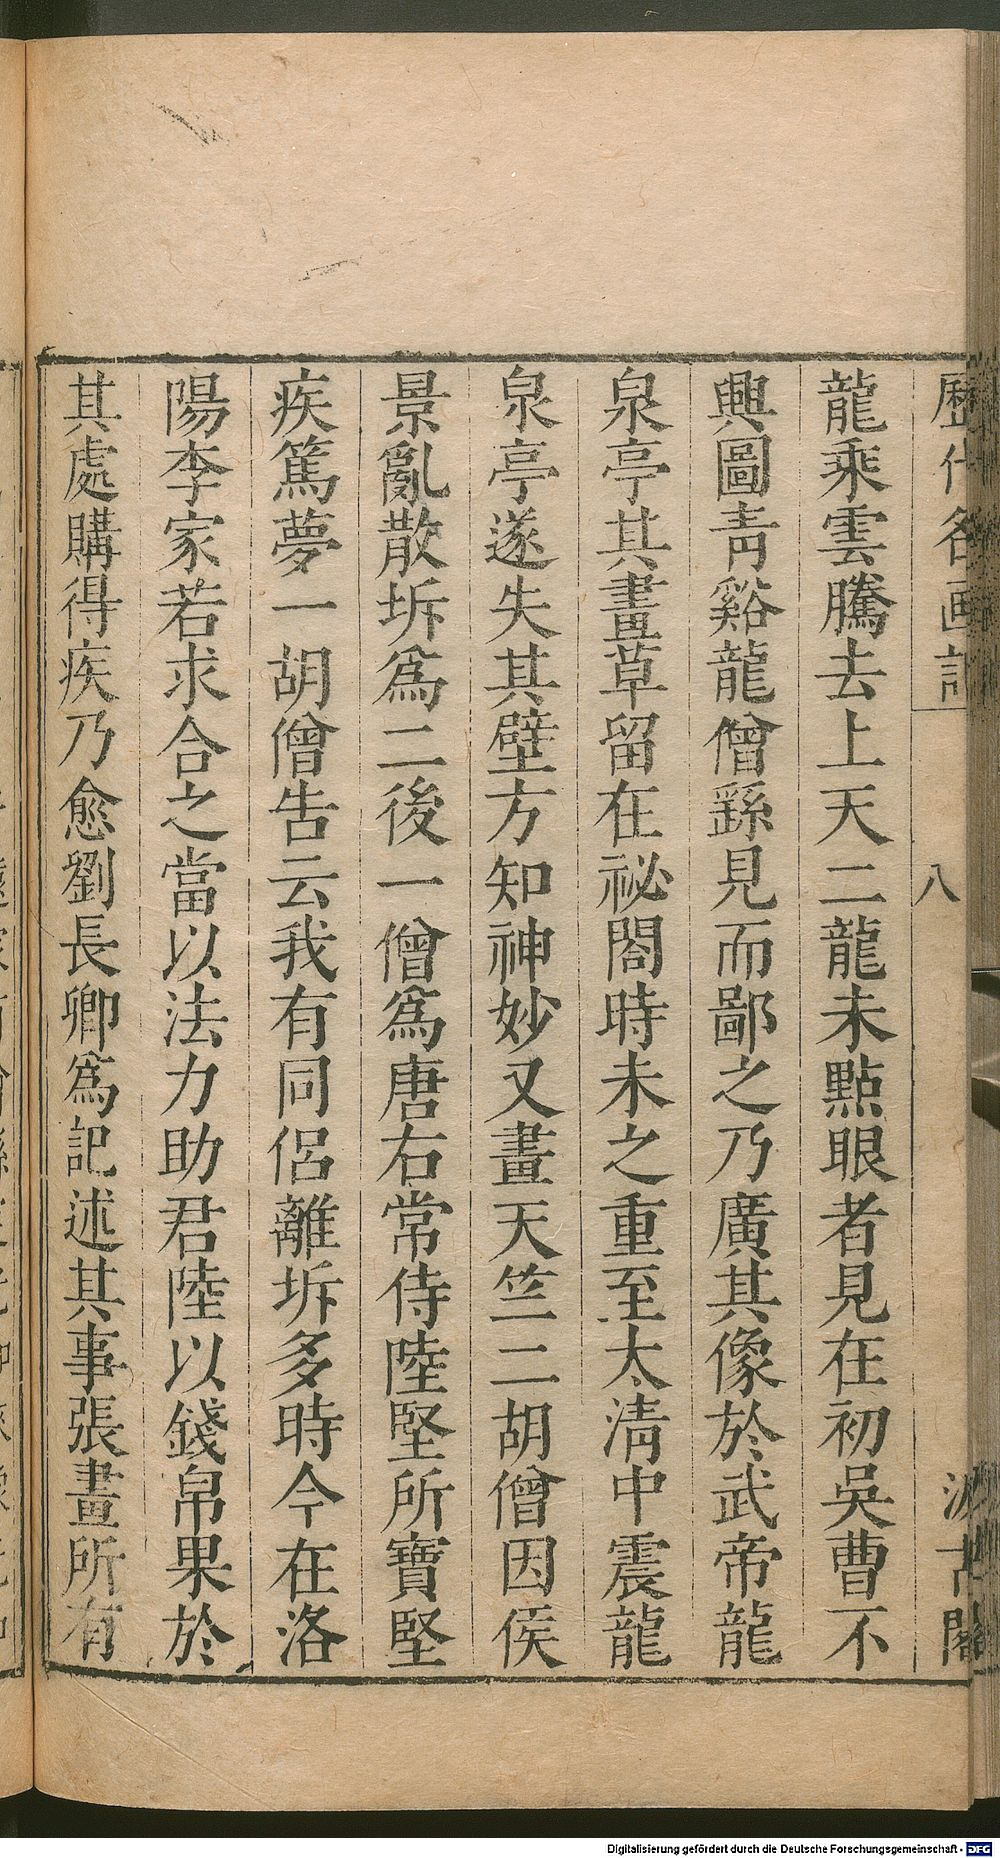 歷代名画記
八
汲古閣
龍乘雲騰去上天二龍未點眼者見在初吳曹不
興圖靑谿龍僧繇見而鄙之乃廣其像於武帝龍
泉亭其畫草留在祕閣時未之重至太淸中震龍
泉亭遂失其壁方知神妙又畫天竺二胡僧因侯
景亂散坼爲二後一僧爲唐右常侍陸堅所寶堅
疾篤夢一胡僧告云我有同侶離坼多時今在洛
陽李家若求合之當以法力助君陸以錢帛果於
其處購得疾乃愈劉長卿爲記述其事張畫所有
Digitalisierung gefördert durch die Deutsche Forschungsgemeinschaft - DFG